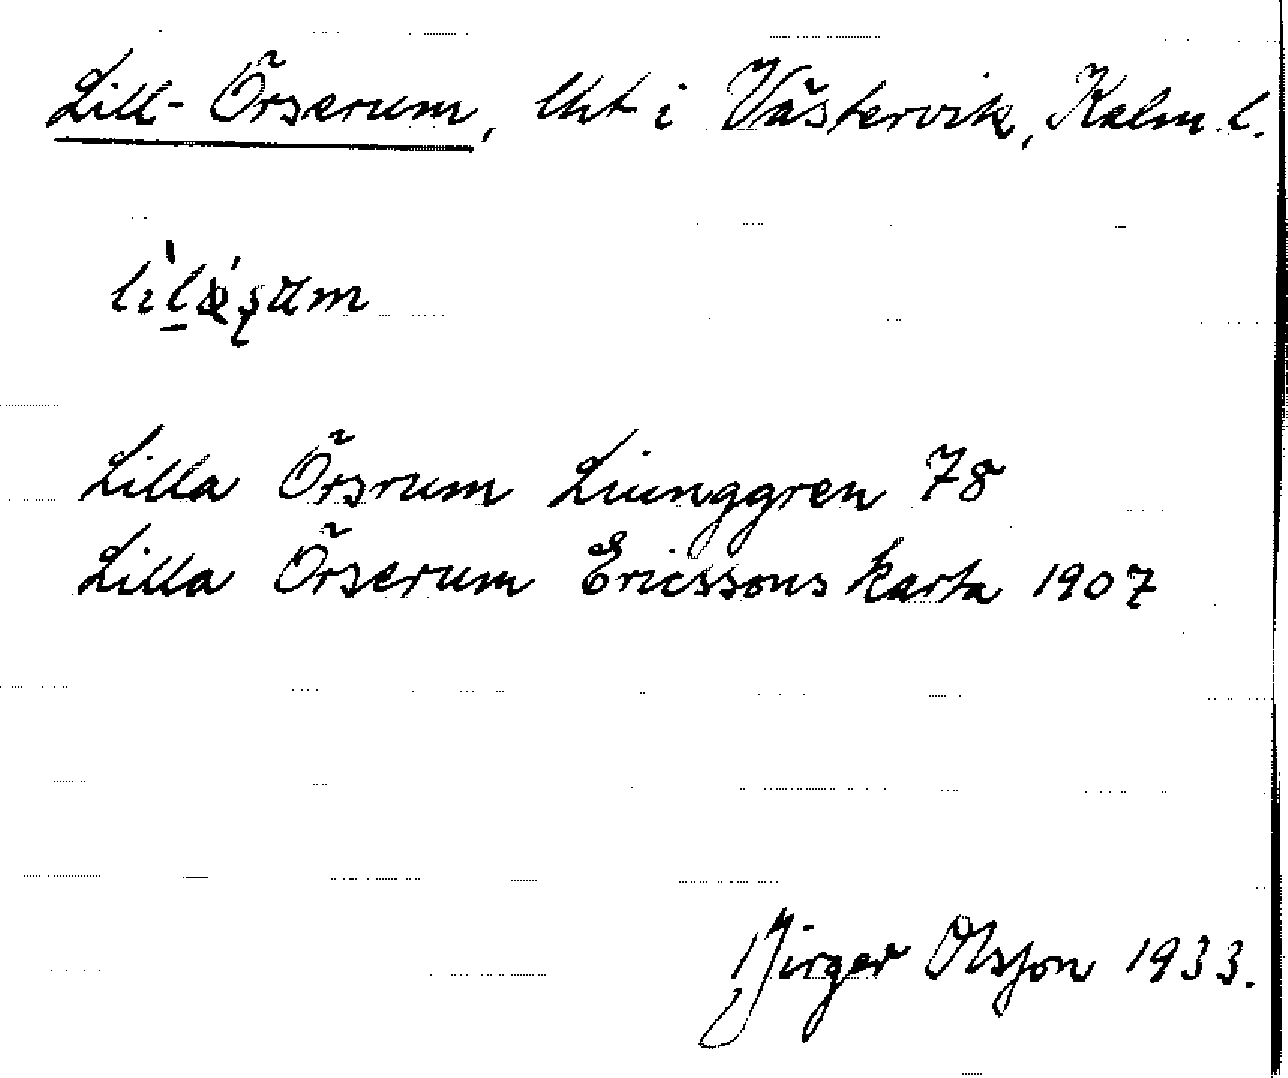 Lill-Örserum, lht i Västervik, Kalm. l.
Lilla Örsrum Liunggren 78
Lilla Örserum Ericssons karta 1907
Birger Olsson 1933.